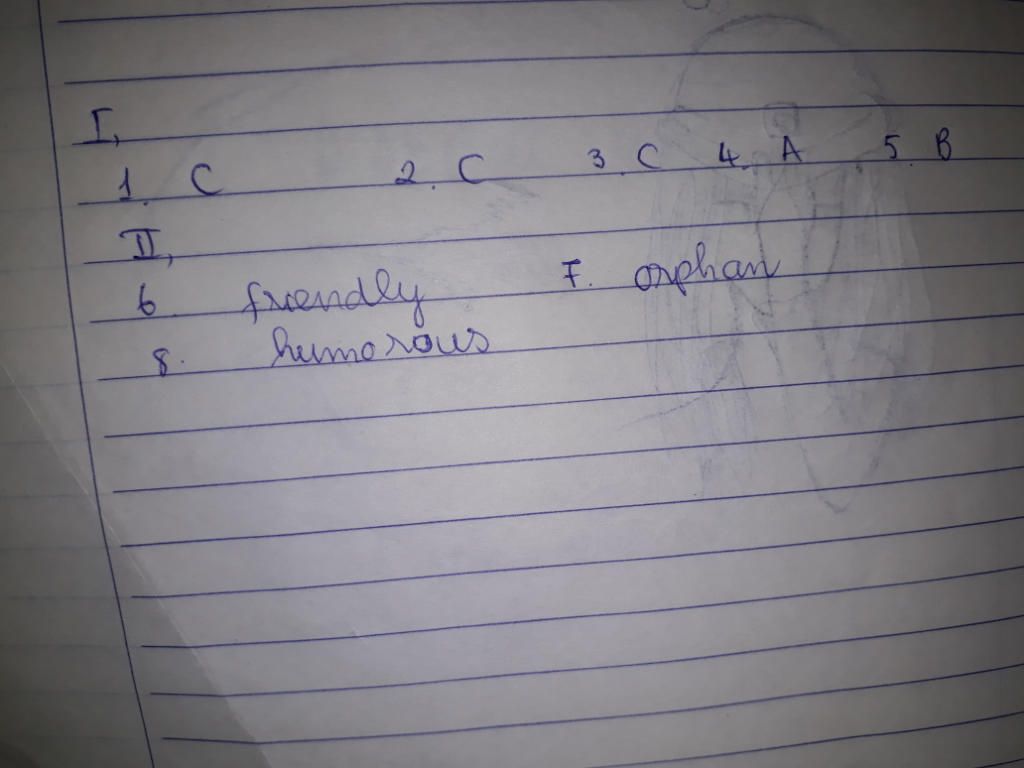 I,
1. C 2. C 3. C 4. A 5. B
II,
6. friendly 7. orphan
8. humorous